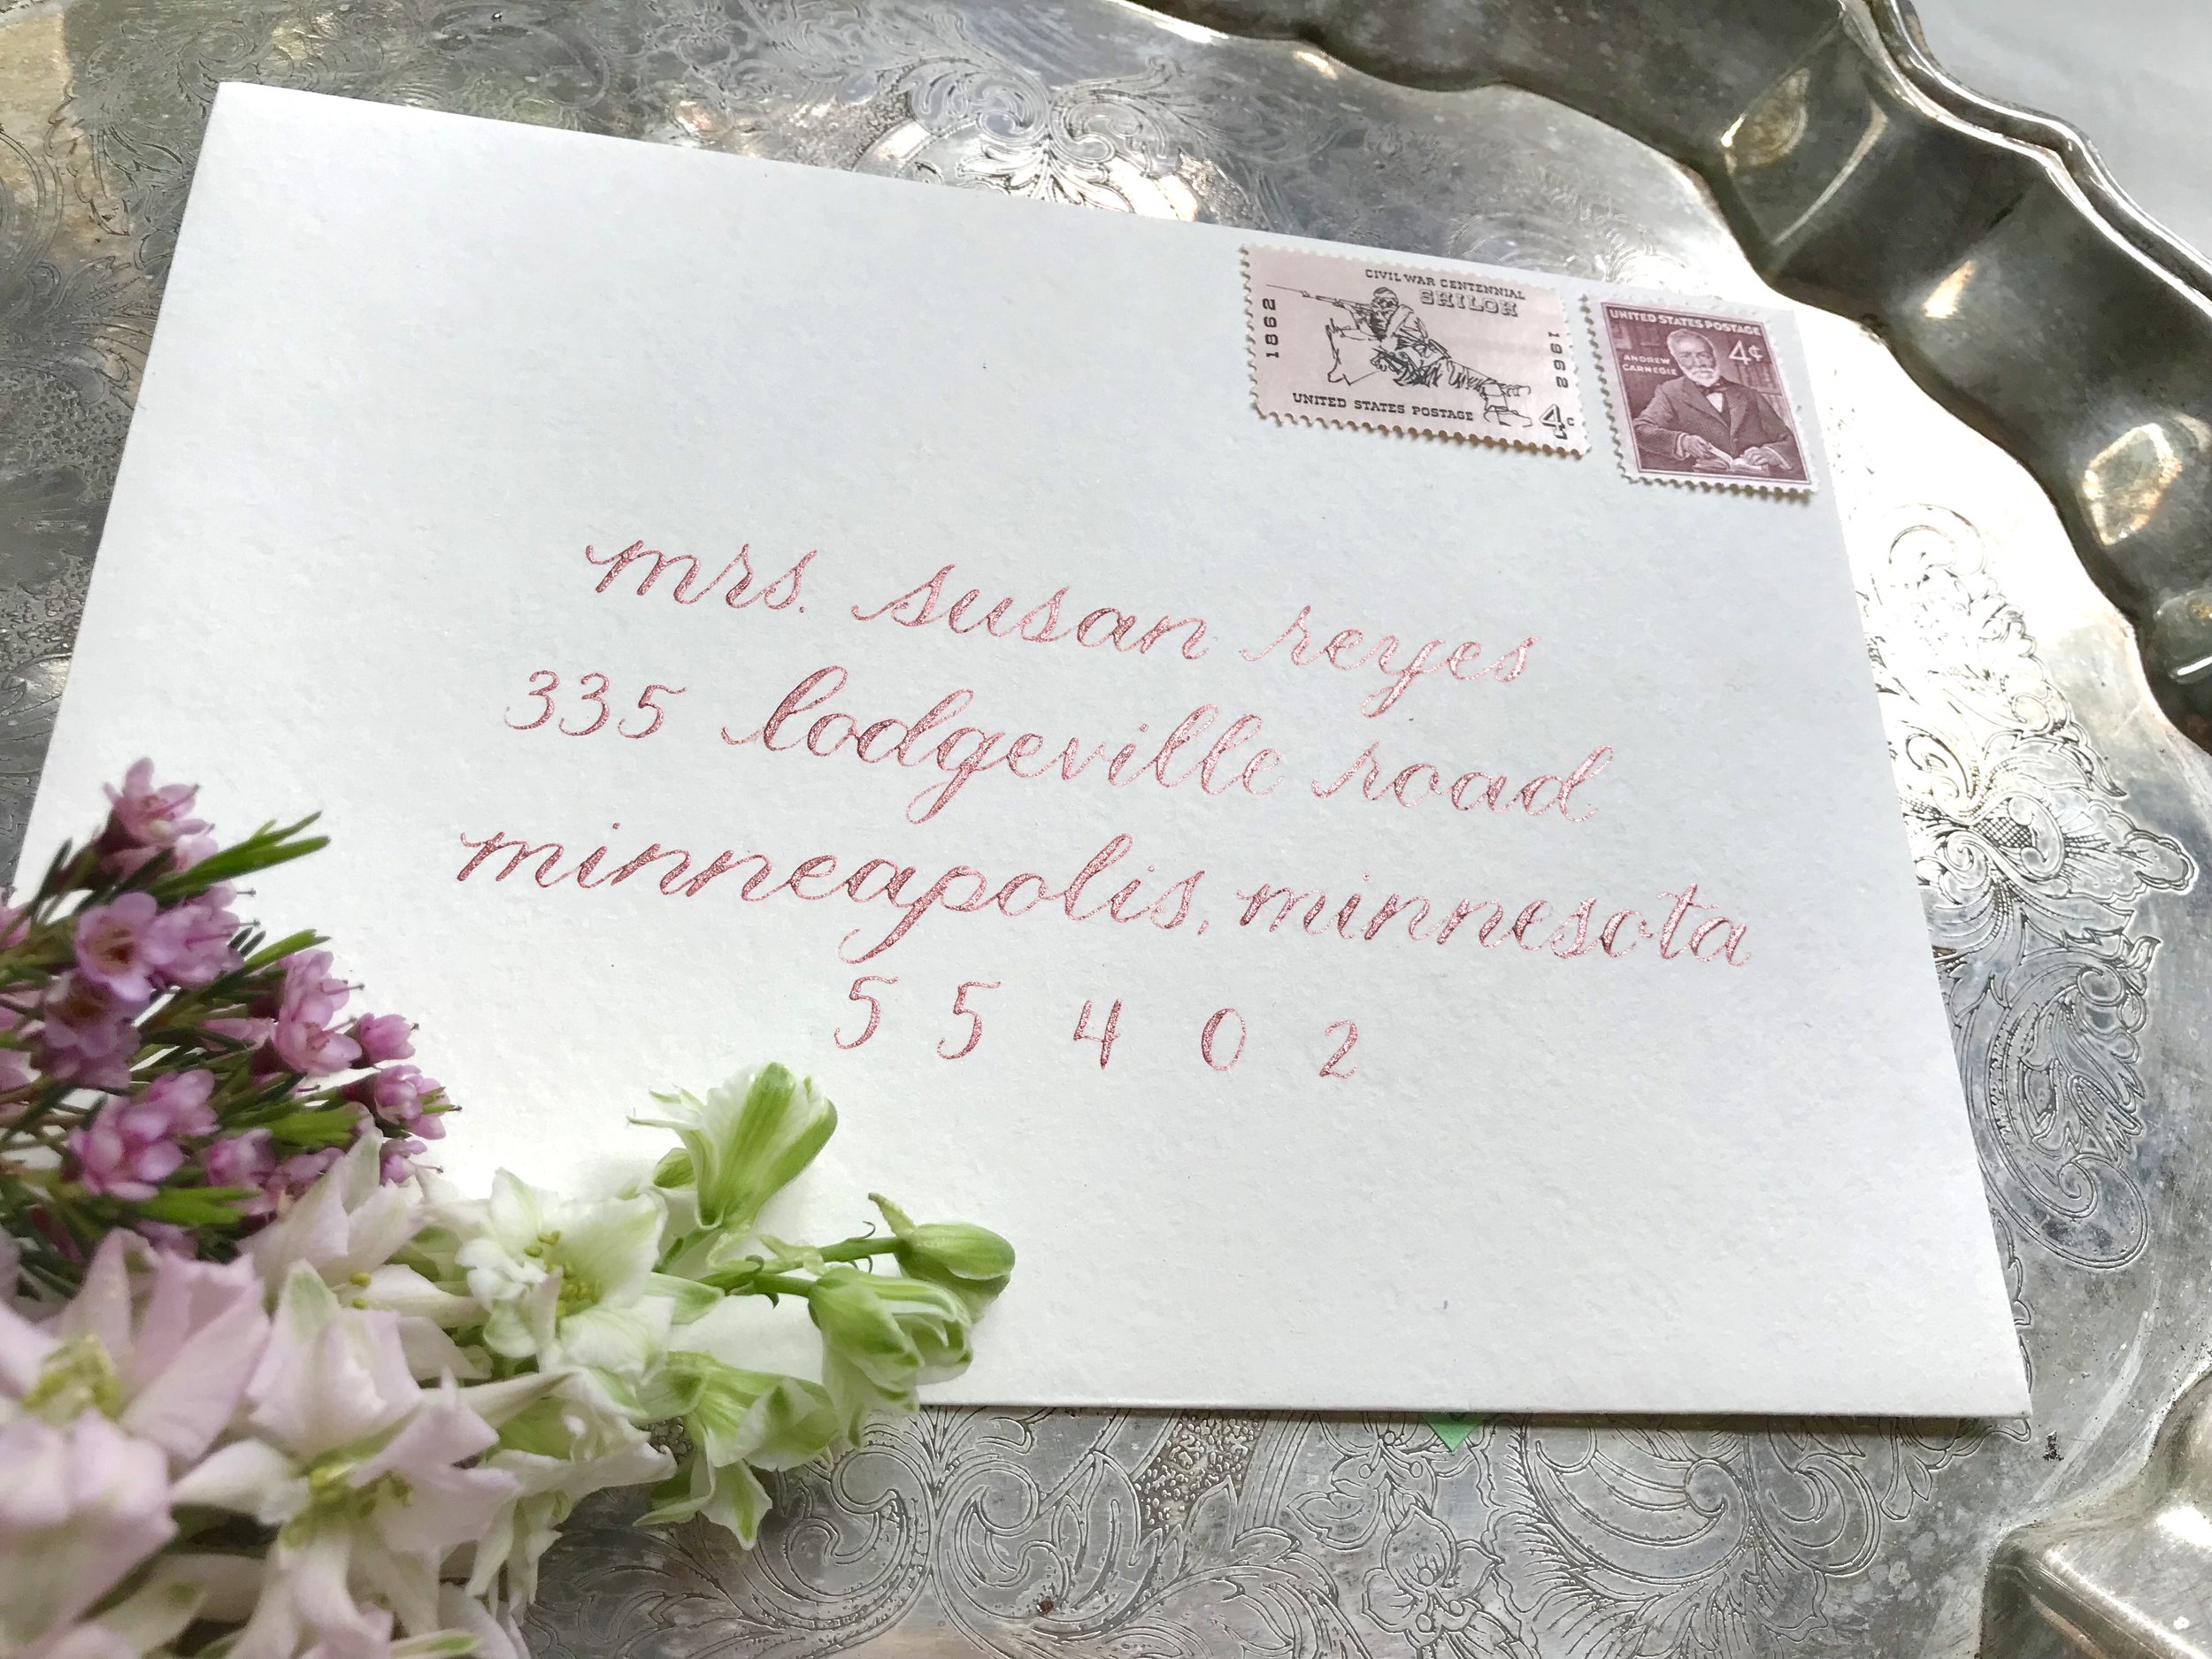 CIVIL WAR CENTENNIAL
SHILOH
1862
1962
UNITED STATES POSTAGE
4c
UNITED STATES POSTAGE
ANDREW
CARNEGIE
4¢
mrs. susan reyes
335 lodgeville road
minneapolis, minnesota
55402